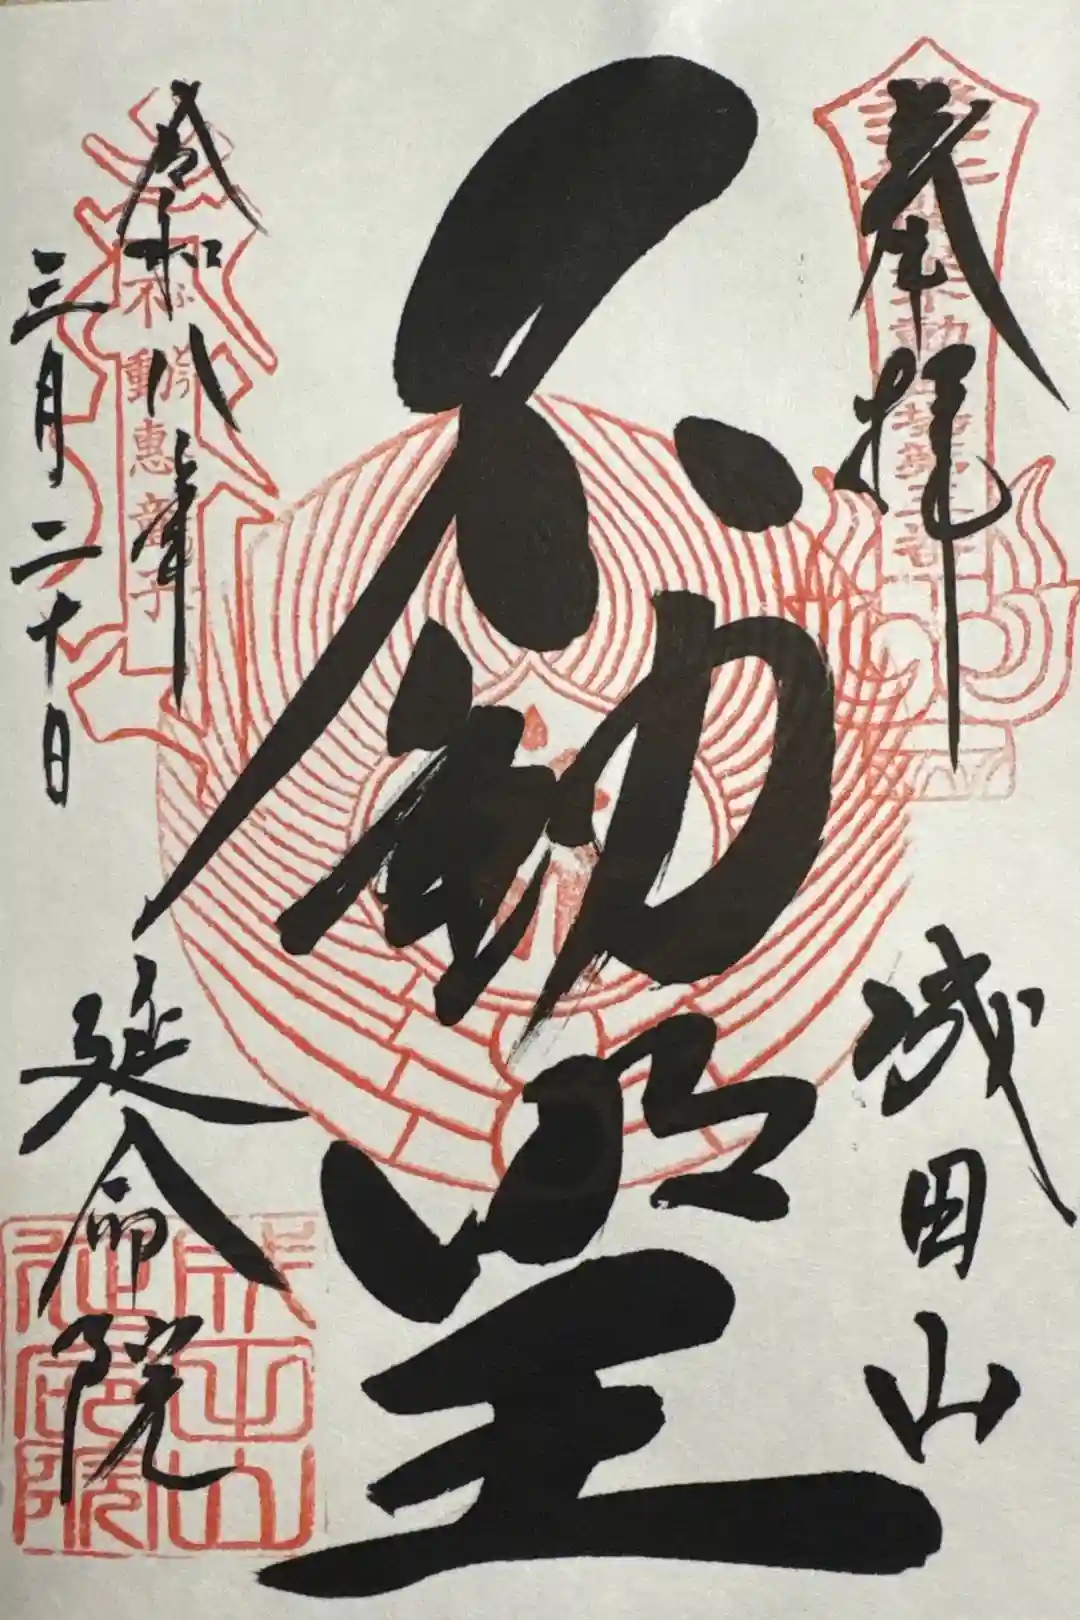 奉拝
成田山
不動明王
令和八年
三月二十日
延命院
不動惠童子
成田山
延命院